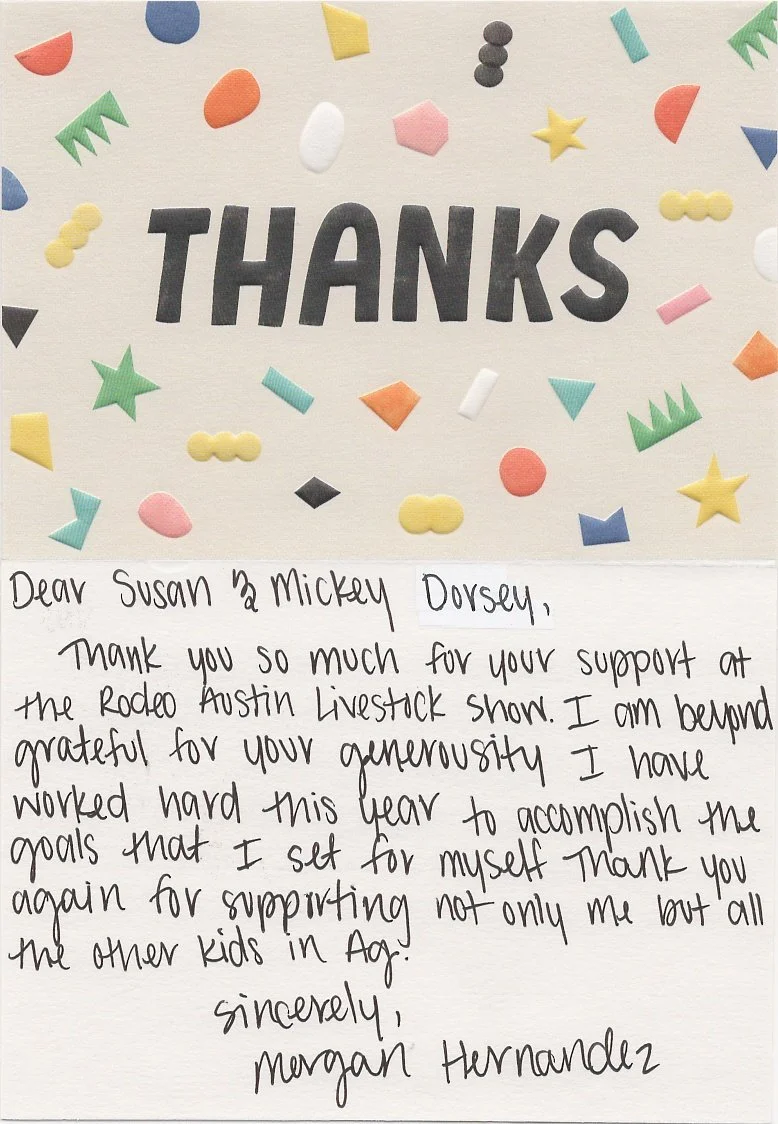 THANKS
Dear Susan & Mickey Dorsey,
Thank you so much for your support at
the Rodeo Austin Livestock show. I am beyond
grateful for your generousity I have
worked hard this year to accomplish the
goals that I set for myself Thank you
again for supporting not only me but all
the other kids in Ag.
sincerely,
Morgan Hernandez